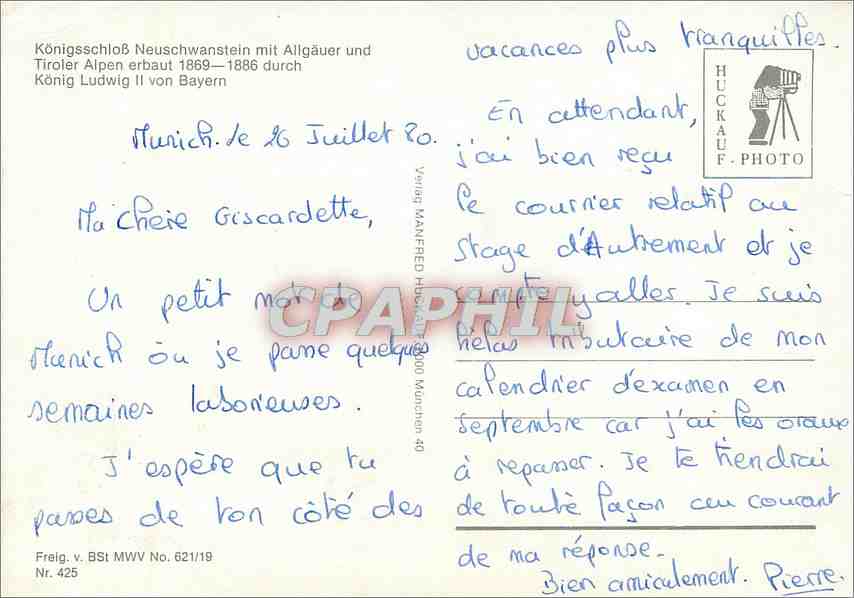 Königsschloß Neuschwanstein mit Allgäuer und
Tiroler Alpen erbaut 1869—1886 durch
König Ludwig II von Bayern
Munich. le 26 Juillet 80.
Ma chère Giscardette,
Un petit mot de
Munich où je passe quelques
semaines laborieuses.
J'espère que tu
passes de ton côté des
Freig. v. BSt MWV No. 621/19
Nr. 425
Verlag MANFRED HUCKAUF 8000 München 40
vacances plus tranquilles.
En attendant,
j'ai bien reçu
le courrier relatif au
stage d'Autrement et je
compte y aller. Je suis
hélas tributaire de mon
calendrier d'examen en
septembre car j'ai les oraux
à repasser. Je te tiendrai
de toute façon au courant
de ma réponse.
Bien amicalement. Pierre.
HUCKAUF - PHOTO
CPAPHIL